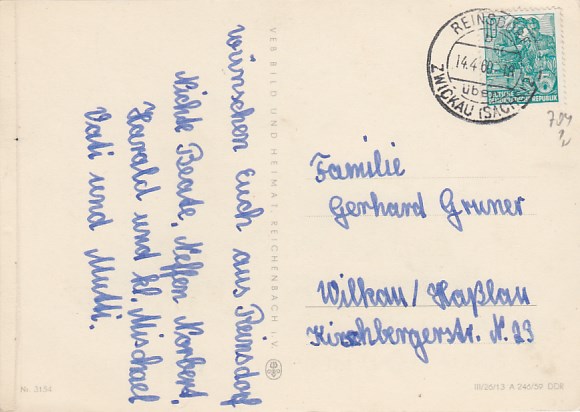 wünschen Euch aus Reinsdorf
Nichte Beate, Neffen Norbert,
Harald und kl. Michael
Vati und Mutti.
VEB BILD UND HEIMAT, REICHENBACH I. V.
REINSDORF
14.4.60
über
ZWICKAU (SACHS)
REPUBLIK
Familie
Gerhard Gruner
Wilkau/Haßlau
Kirchbergerstr. N. 23
Nr. 3134
III/26/13 A 246/59 DDR